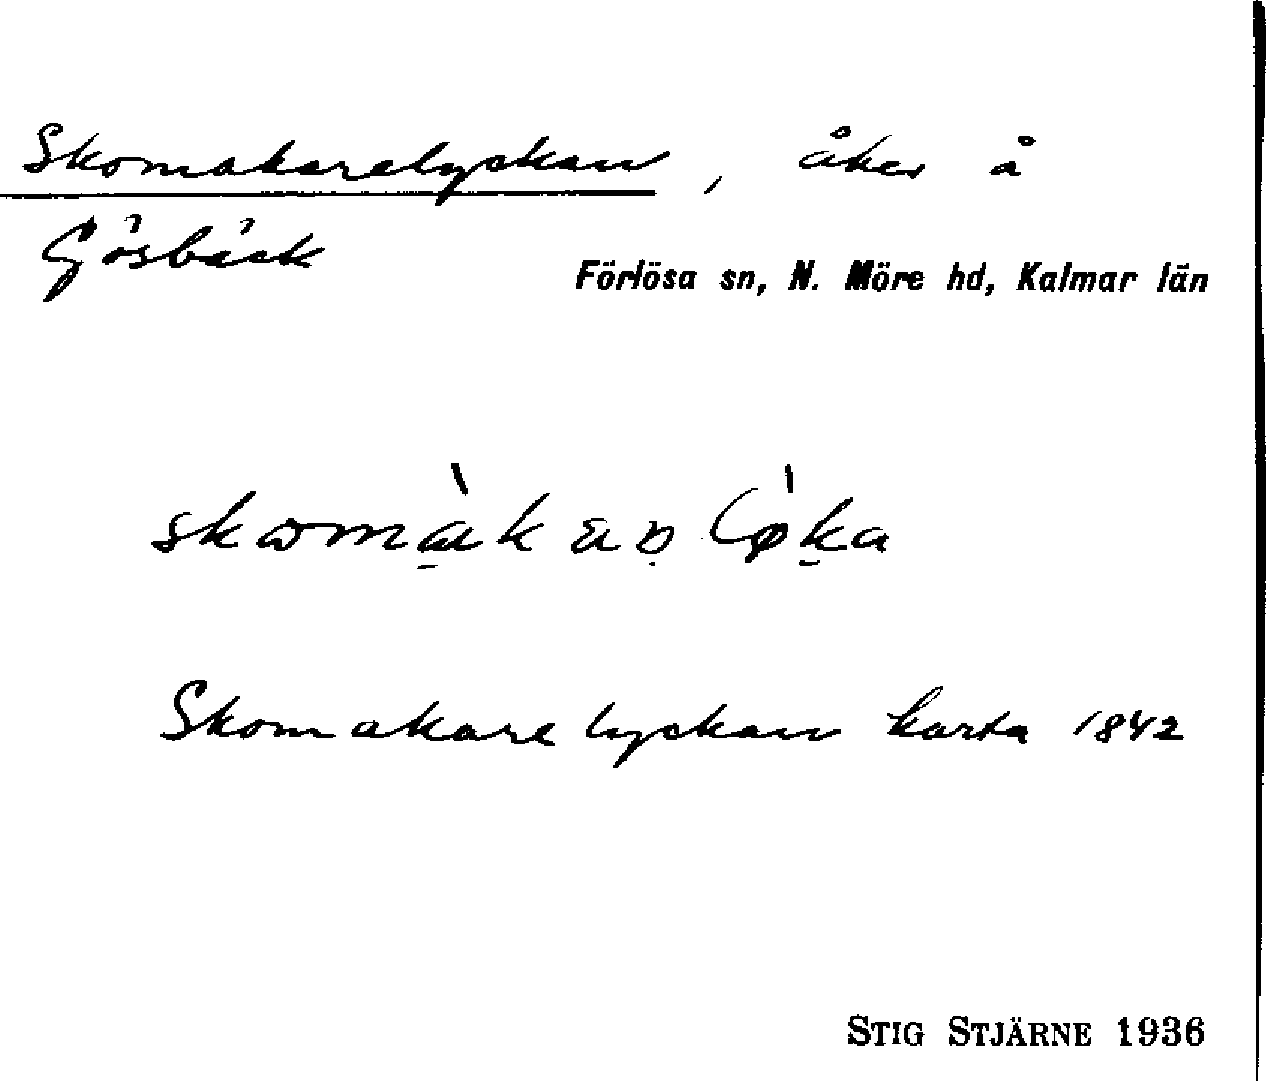 Skomakarelyckan, åker å
Gösbäck
Förlösa sn, N. Möre hd, Kalmar län
Skomakarelyckan karta 1842
STIG STJÄRNE 1936